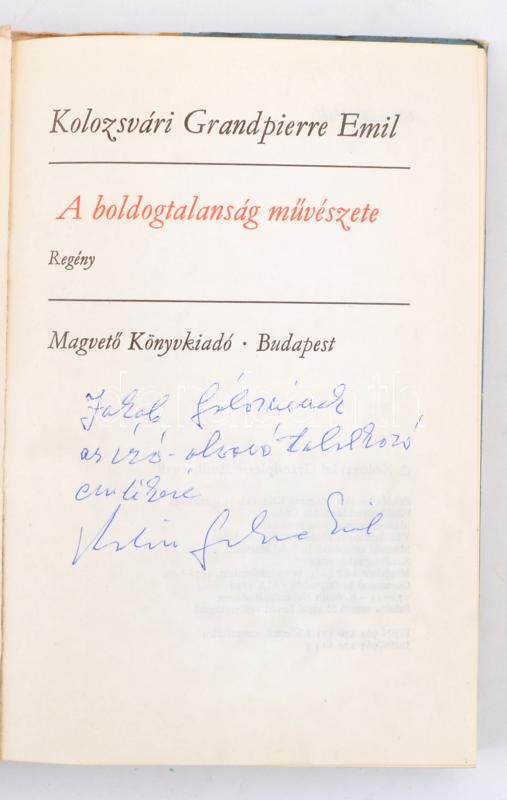 Kolozsvári Grandpierre Emil
A boldogtalanság művészete
Regény
Magvető Könyvkiadó · Budapest
Jakab
az író-olvasó találkozó
emlékére
Emil